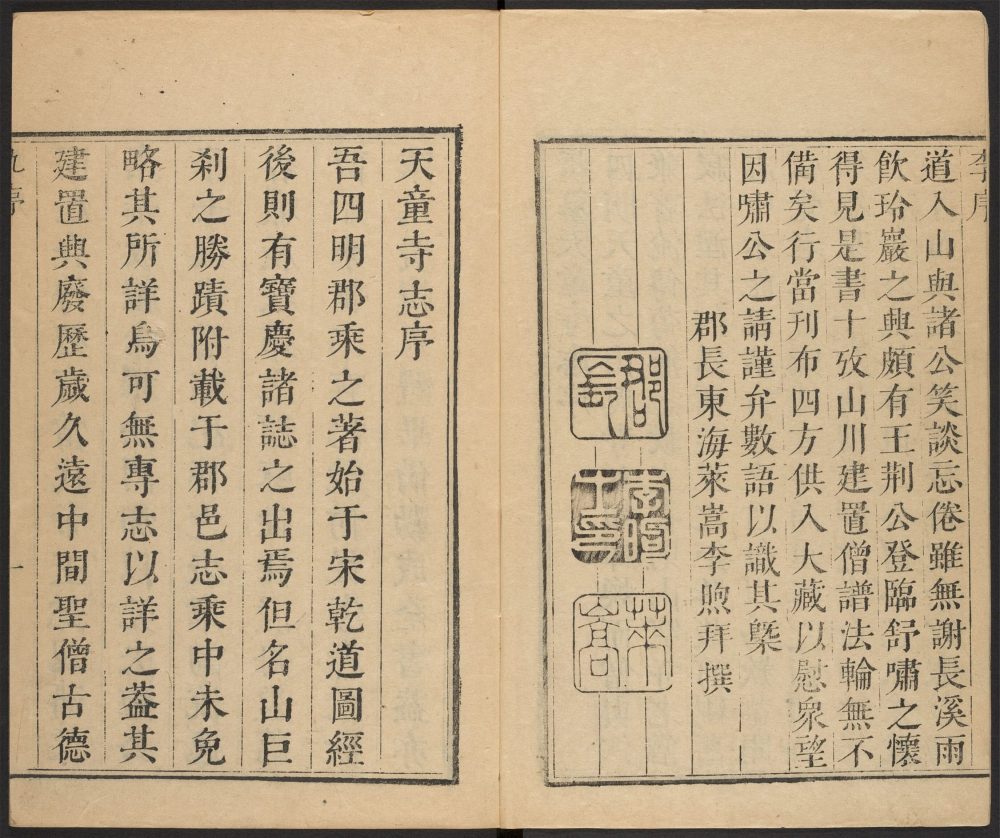 李序
道入山與諸公笑談忘倦雖無謝長溪雨
飲玲巖之興頗有王荆公登臨舒嘯之懷
得見是書十攷山川建置僧譜法輪無不
備矣行當刊布四方供入大藏以慰衆望
因嘯公之請謹弁數語以識其槩
郡長東海萊嵩李煦拜撰
郡長
萊嵩
天童寺志序
吾四明郡乘之著始于宋乾道圖經
後則有寶慶諸誌之出焉但名山巨
刹之勝蹟附載于郡邑志乘中未免
略其所詳烏可無專志以詳之葢其
建置興廢歷歲久遠中間聖僧古德
序
一